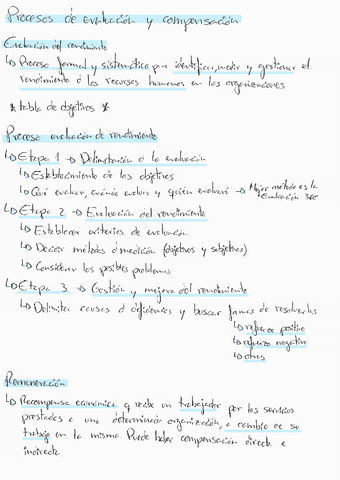 Procesos de evaluación y compensación
Evaluación del rendimiento
↳ Proceso formal y sistemático para identificar, medir y gestionar el
rendimiento d los recursos humanos en las organizaciones
* tabla de objetivos *
Proceso evaluación de rendimiento
↳ Etapa 1 → Delimitación d la evaluación
↳ Establecimiento de los objetivos
↳ Qué evaluar, cuándo evaluar y quién evaluará → Mejor método es la
Evaluación 360º
↳ Etapa 2 → Evaluación del rendimiento
↳ Establecer criterios de evaluación
↳ Decidir métodos d medición (objetivos y subjetivos)
↳ Considerar los posibles problemas
↳ Etapa 3 → Gestión y mejora del rendimiento
↳ Delimitar causas d deficiencias y buscar formas de resolverlas
↳ refuerzo positivo
↳ refuerzo negativo
↳ otros
Remuneración
↳ Recompensa económica q recibe un trabajador por los servicios
prestados a una determinada organización, a cambio de su
trabajo en la misma. Puede haber compensación directa e
indirecta